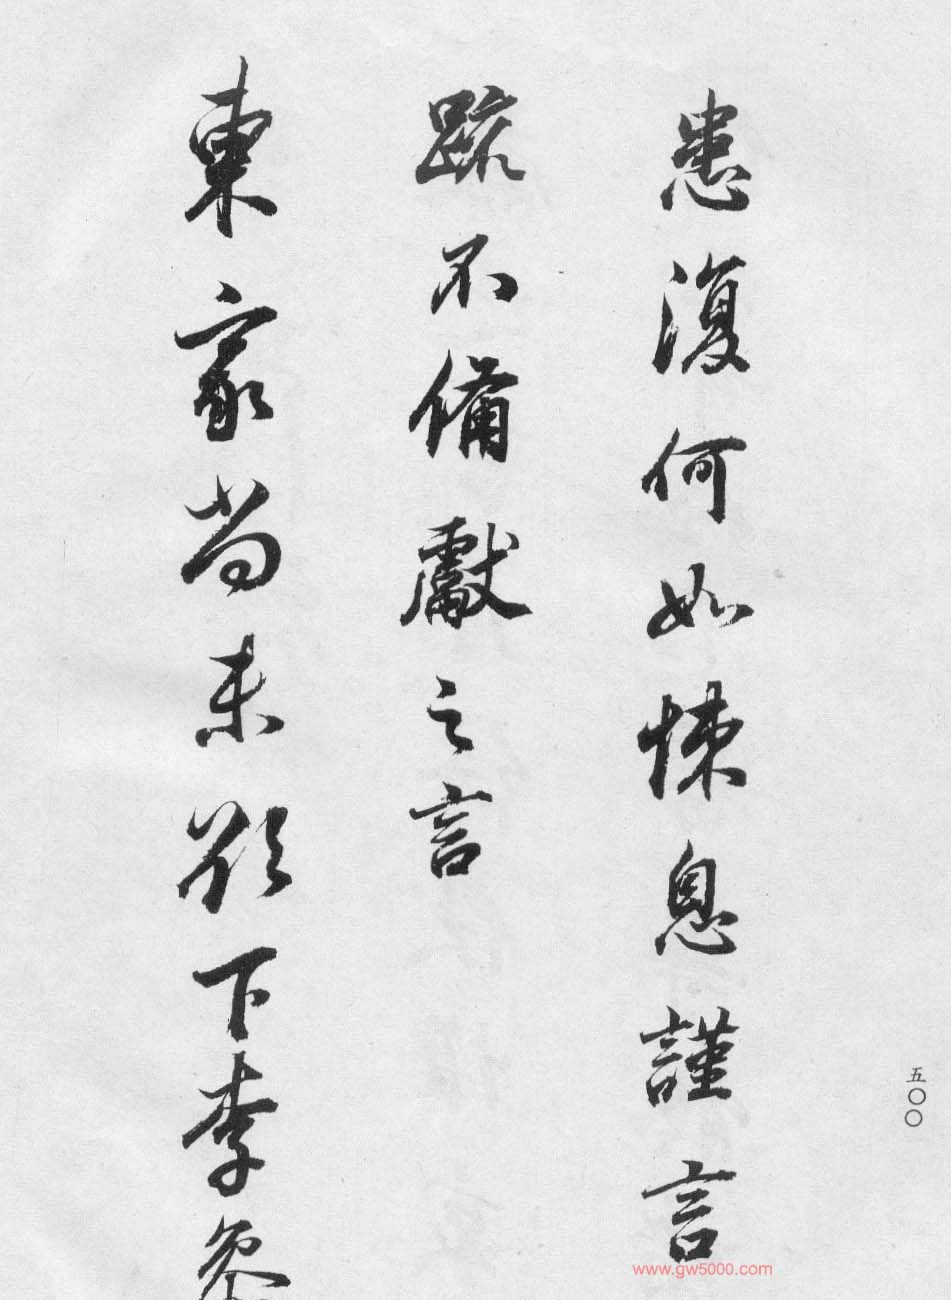 五〇〇
患復何如悚息謹言
疏不備獻之言
東家尚未欲下李
www.gw5000.com